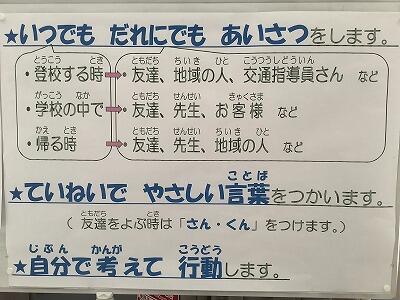 ★いつでも だれにでも あいさつをします。
とうこう とき ともだち ちいき ひと こうつうしどういん
・登校する時➡・友達、地域の人、交通指導員さん など
がっこう なか ともだち せんせい きゃくさま
・学校の中で➡・友達、先生、お客様 など
かえ とき ともだち せんせい ちいき ひと
・帰る時➡・友達、先生、地域の人 など
ことば
★ていねいで やさしい言葉をつかいます。
ともだち とき
( 友達をよぶ時は「さん・くん」をつけます。)
じぶん かんが こうどう
★自分で考えて 行動します。